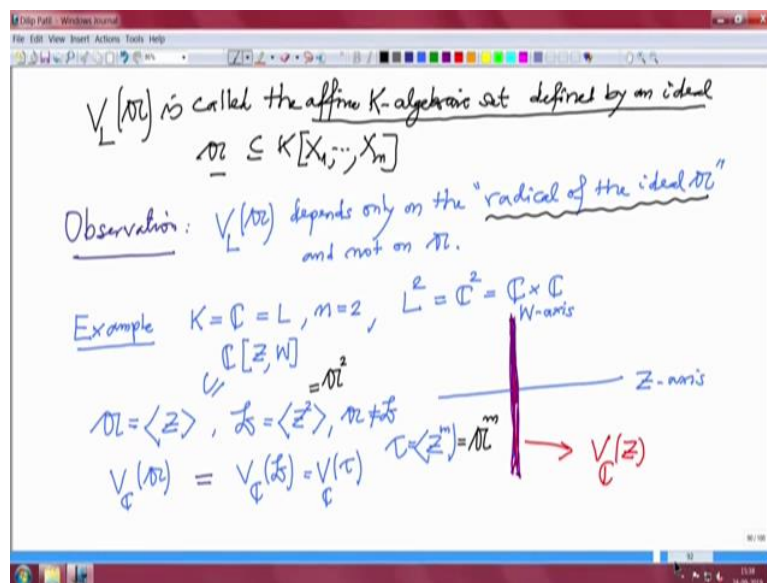 Dilip Patil - Windows Journal
File Edit View Insert Actions Tools Help
V_L(𝔄) is called the affine K-algebraic set defined by an ideal
𝔄 ⊆ K[X_1, ..., X_n]
Observation: V_L(𝔄) depends only on the "radical of the ideal 𝔄"
and not on 𝔄.
Example K = ℂ = L, n = 2, L^2 = ℂ^2 = ℂ × ℂ
W-axis
ℂ[Z, W]
= 𝔄^2
Z-axis
𝔄 = <Z>, 𝔅 = <Z^2>, 𝔄 ≠ 𝔅
τ = <Z^m> = 𝔄^m
V_ℂ(𝔄) = V_ℂ(𝔅) = V_ℂ(τ)
→ V_ℂ(Z)
92
15:38